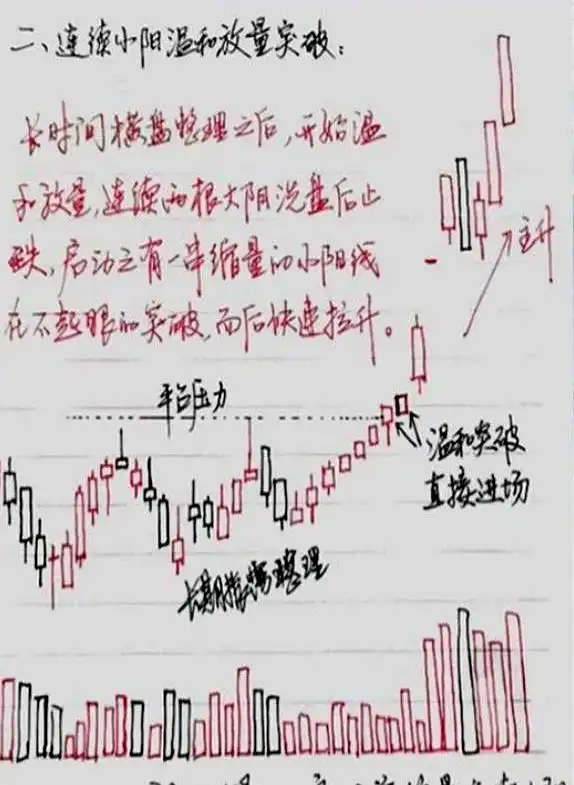 二、连续小阳温和放量突破:
长时间横盘整理之后,开始温
和放量,连续两根大阳洗盘后止
跌,启动之有一串缩量的小阳线
在不起眼的突破,而后快速拉升。
主升
平台压力
温和突破
直接进场
长期横盘整理